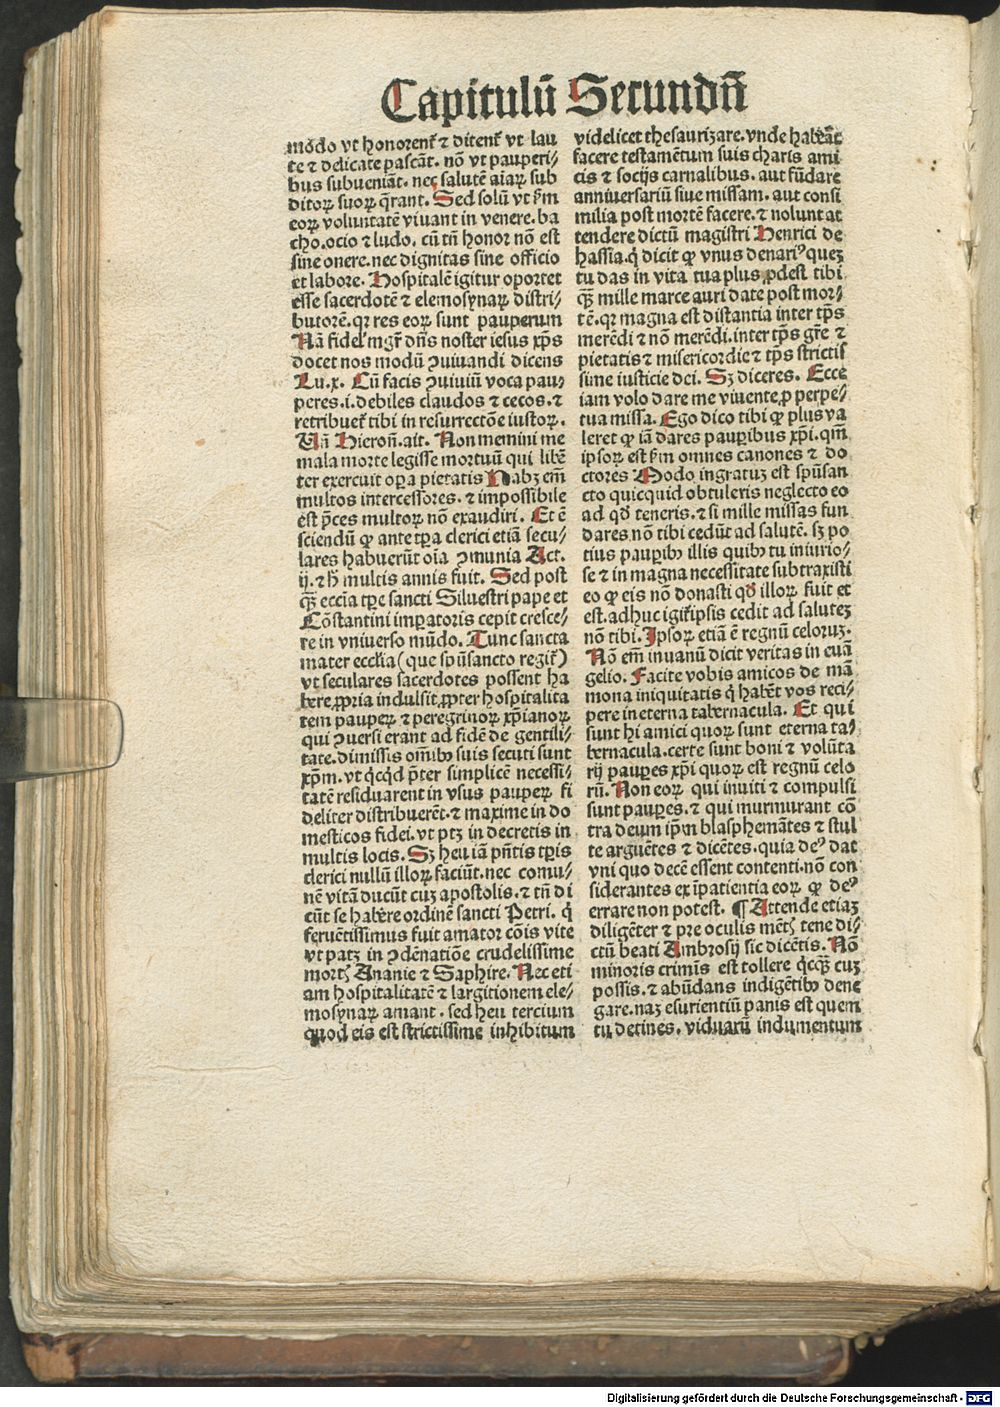 Capitulū Secundū
modo vt honorent᷑ ⁊ ditent᷑ vt lau
te ⁊ delicate pascāt. nō vt pauperi⸗
bus subueniāt. nec salutē aīaꝝ sub
ditoꝝ suoꝝ q̄rant. Sed solū vt ẜm
eoꝝ voluntatē viuant in venere. ba
cho. ocio ⁊ ludo. cū tn̄ honor nō est
sine onere. nec dignitas sine officio
et labore. Hospitalē igitur oportet
esse sacerdotē ⁊ elemosynaꝝ distri⸗
butorē. qꝛ res eoꝝ sunt pauperum
Nā fidel̓ mgr̄ dn̄s noster iesus xp̄s
docet nos modū ꝯuiuandi dicens
Lu.x. Cū facis ꝯuiuiū voca pau⸗
peres.i. debiles claudos ⁊ cecos. ⁊
retribuet᷑ tibi in resurrectōe iustoꝝ.
Vn̄ Hieron̄. ait. Non memini me
mala morte legisse mortuū qui libē
ter exercuit oꝑa pietatis Habꝫ em̄
multos intercessores. ⁊ impossibile
est p̄ces multoꝝ nō exaudiri. Et ē
sciendū ꝙ ante tꝑa clerici etiā secu⸗
lares habuerūt oīa ꝯmunia Act.
ij. ⁊ h̄ multis annis fuit. Sed post
qꝫ̄ eccīa tꝑe sancti Siluestri pape et
Cōstantini imꝑatoris cepit cresce⸗
re in vniuerso mūdo. Tunc sancta
mater eccl̓ia (que spūsancto regit᷑)
vt seculares sacerdotes possent ha
bere ꝓpria indulsit. ꝓpter hospitalita
tem pauperꝝ ⁊ peregrinoꝝ xp̄ianoꝝ
qui ꝯuersi erant ad fidē de gentili⸗
tate. dimissis om̄ibꝰ suis secuti sunt
xp̄m. vt q̇cq̇d p̄ter simplicē necessi⸗
tatē residuarent in vsus pauperꝝ fi
deliter distribuerēt. ⁊ maxime in do
mesticos fidei. vt ptꝫ in decretis in
multis locis. Sꝫ heu iā p̄ntis tꝑis
clerici nullū illoꝝ faciūt. nec comu⸗
nē vitā ducūt cuꝫ apostolis. ⁊ tn̄ di
cūt se habēre ordinē sancti Petri. q̇
feruētissimus fuit amator cōis vite
vt patꝫ in ꝯdēnatiōe crudelissime
mortꝭ Ananie ⁊ Saphire. Nec eti
am hospitalitatē ⁊ largitionem ele⸗
mosynaꝝ amant. sed heu tercium
quod eis est strictissime inhibitum
videlicet thesaurizare. vnde habeāt
facere testamētum suis charis ami
cis ⁊ socijs carnalibus. aut fūdare
anniuersariū siue missam. aut consi
milia post mortē facere. ⁊ nolunt at
tendere dictū magistri Henrici de
hassia. q̇ dicit ꝙ vnus denariꝰ quez
tu das in vita tua plus ꝓdest tibi
qꝫ̄ mille marce auri date post mor⸗
tē. qꝛ magna est distantia inter tp̄s
merēdi ⁊ nō merēdi. inter tp̄s gr̄e ⁊
pietatis ⁊ misericordie ⁊ tp̄s strictis
sime iusticie dei. Sꝫ diceres. Ecce
iam volo dare me viuente. ꝓ perpe⸗
tua missa. Ego dico tibi ꝙ plus va
leret ꝙ iā dares pauꝑibus xp̄i. qm̄
ipsoꝝ est ẜm omnes canones ⁊ do
ctores Modo ingratuꝫ est spūsan
cto quicquid obtuleris neglecto eo
ad qḋ teneris. ⁊ si mille missas fun
dares nō tibi cedūt ad salutē. sꝫ po
tius pauꝑibꝰ illis quibꝰ tu iniurio⸗
se ⁊ in magna necessitate subtraxisti
eo ꝙ eis nō donasti qḋ illoꝝ fuit et
est. adhuc igit᷑ ipsis cedit ad salutez
nō tibi. Ipsoꝝ etiā ē regnū celoruꝫ.
Nō em̄ in vanū dicit veritas in euā
gelio. Facite vobis amicos de mā
mona iniquitatis q̇ habēt vos reci⸗
pere in eterna tabernacula. Et qui
sunt hi amici quoꝝ sunt eterna ta⸗
bernacula. certe sunt boni ⁊ volūta
rij pauꝑes xp̄i quoꝝ est regnū celo
rū. Non eoꝝ qui inuiti ⁊ compulsi
sunt pauꝑes. ⁊ qui murmurant cō
tra deum ip̄m blasphemātes ⁊ stul
te arguētes ⁊ dicētes. quia deꝰ dat
vni quo decē essent contenti. nō con
siderantes ex īpatientia eoꝝ ꝙ deꝰ
errare non potest. ¶ Attende etiaꝫ
diligēter ⁊ pre oculis mētꝭ tene di⸗
ctū beati Ambrosij sic dicētis. Nō
minoris crimīs est tollere q̇cqꝫ̄ cuꝫ
possis. ⁊ abūdans indigētibꝰ dene
gare. naꝫ esurientiū panis est quem
tu detines. viduarū indumentum
Digitalisierung gefördert durch die Deutsche Forschungsgemeinschaft - DFG